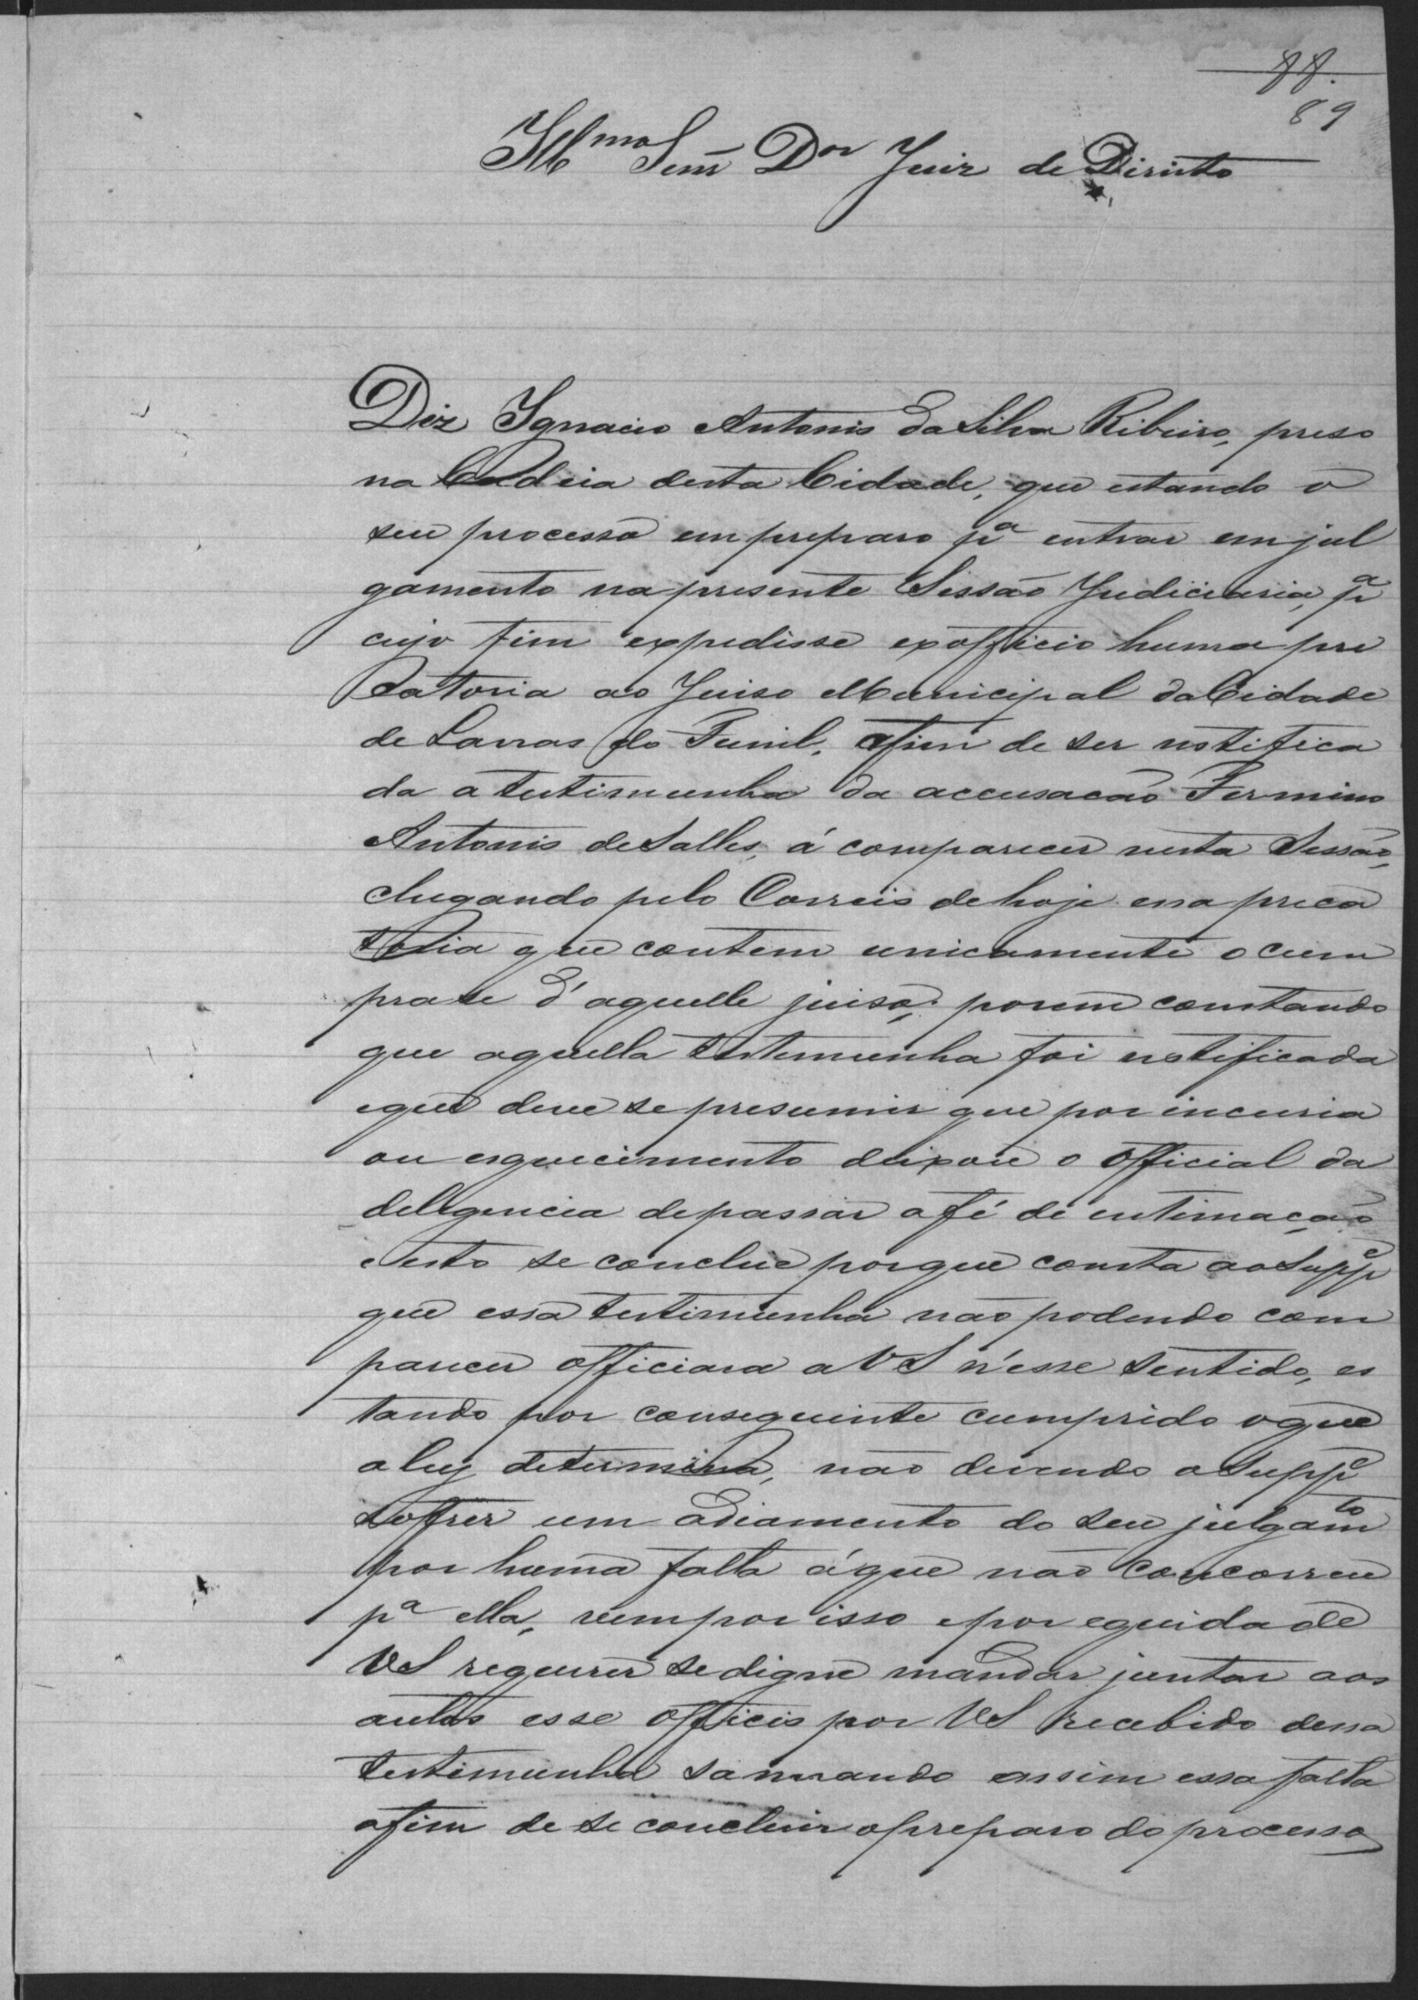 88.
89
Illmo Senr Dor Juiz de Direito
Diz Ignacio Antonio da Silva Ribeiro, preso
na Cadeia desta Cidade, que estando o
seu processo em preparo pa entrar em jul
gamento na presente Sessão Judiciaria, pa
cujo fim expedisse exofficio huma pre
catoria ao Juiso Municipal da Cidade
de Lavras do Funil, afim de ser notifica
da a testimunha da accusacão Fermino
Antonio de Salles, á comparecer nesta Sessão,
chegando pelo Correio de hoje essa preca
toria que contem unicamente o cum
pra se d'aquelle juiso; porem constando
que aquella testemunha foi notificada
e que deve se presumir que por incuria
ou esquecimento deixou o official da
deligencia de passar a fé de intimação
e isto se conclue porque consta ao Suppe
que essa testimunha não podendo com
parecer officiara a VS n'esse sentido, es
tando por conseguinte cumprido o que
a ley determina, não devendo o Suppe
sofrer um adiamento do seu julgamto
por huma falta á que não concorreu
pa ella, vem por isso e por equidade
VS requerer se digne mandar juntar aos
autos esse officio por VS recebido dessa
testimunha sannando assim essa falta
afim de se concluir o preparo do processo